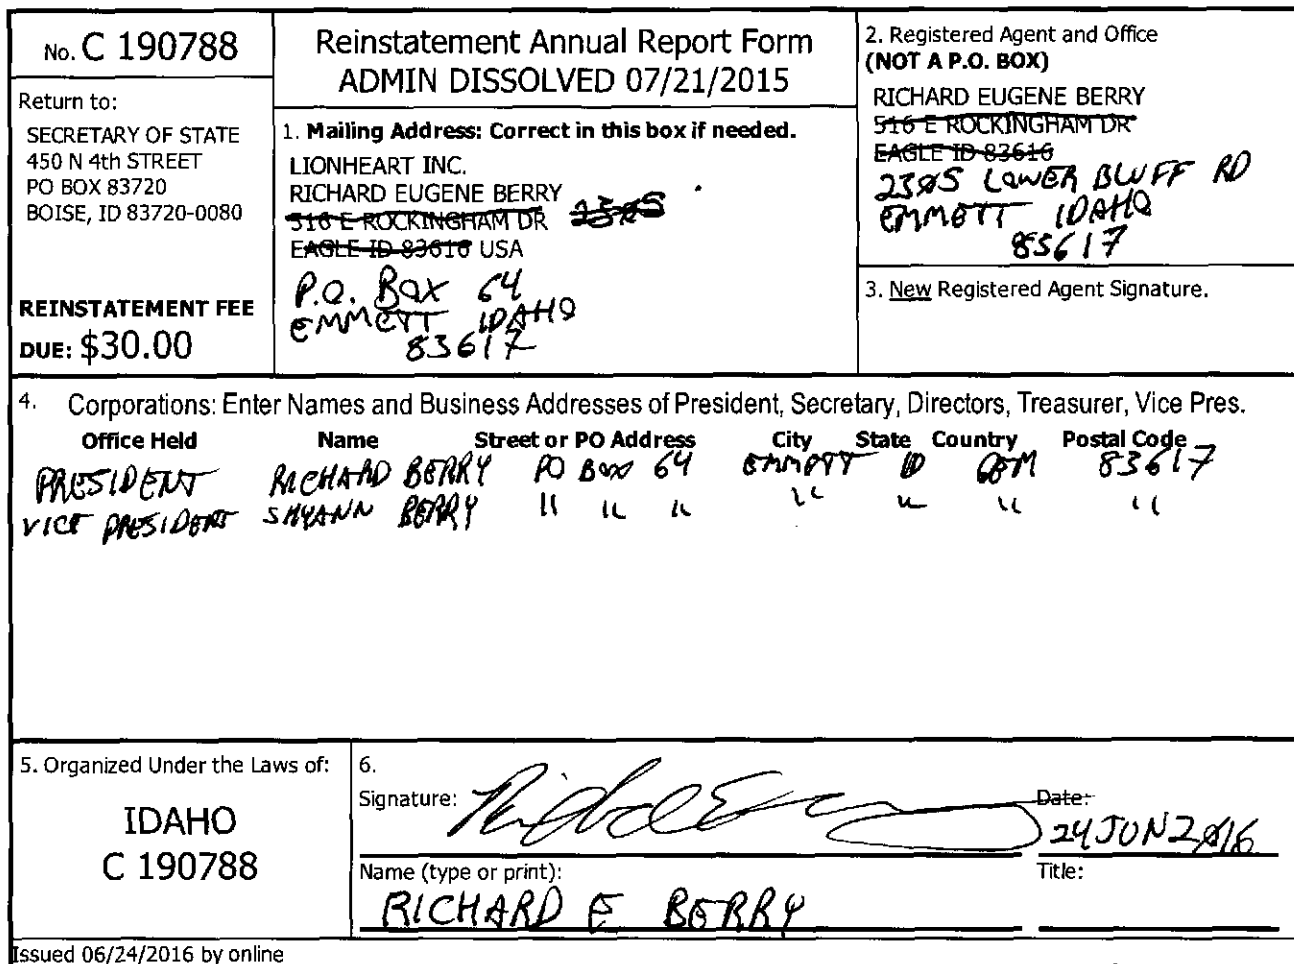 No. C 190788
Return to:
SECRETARY OF STATE
450 N 4th STREET
PO BOX 83720
BOISE, ID 83720-0080
REINSTATEMENT FEE
DUE: $30.00
Reinstatement Annual Report Form
ADMIN DISSOLVED 07/21/2015
1. Mailing Address: Correct in this box if needed.
LIONHEART INC.
RICHARD EUGENE BERRY
516 E ROCKINGHAM DR 2305
EAGLE ID 83616 USA
P.O. BOX 64
EMMETT IDAHO
83617
2. Registered Agent and Office
(NOT A P.O. BOX)
RICHARD EUGENE BERRY
516 E ROCKINGHAM DR
EAGLE ID 83616
2305 LOWER BLUFF RD
EMMETT IDAHO
83617
3. New Registered Agent Signature.
4. Corporations: Enter Names and Business Addresses of President, Secretary, Directors, Treasurer, Vice Pres.
Office Held Name Street or PO Address City State Country Postal Code
PRESIDENT RICHARD BERRY PO BOX 64 EMMETT ID GEM 83617
VICE PRESIDENT SHYANN BERRY " " " " " " "
5. Organized Under the Laws of:
IDAHO
C 190788
6.
Signature:
Date:
24 JUN 2016
Name (type or print):
Title:
RICHARD E BERRY
Issued 06/24/2016 by online